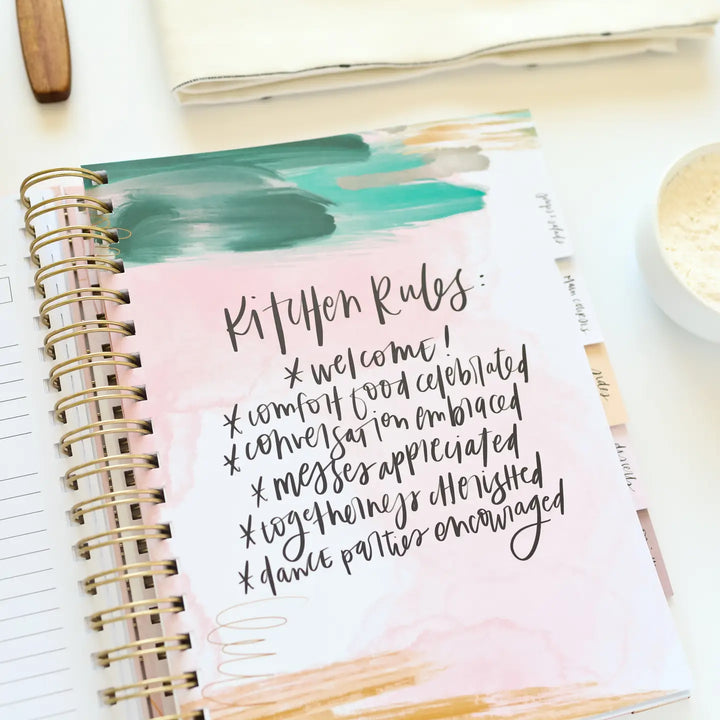 Kitchen Rules:
* welcome!
* comfort food celebrated
* conversation embraced
* messes appreciated
* togetherness cherished
* dance parties encouraged
soups & salads
main courses
sides
desserts